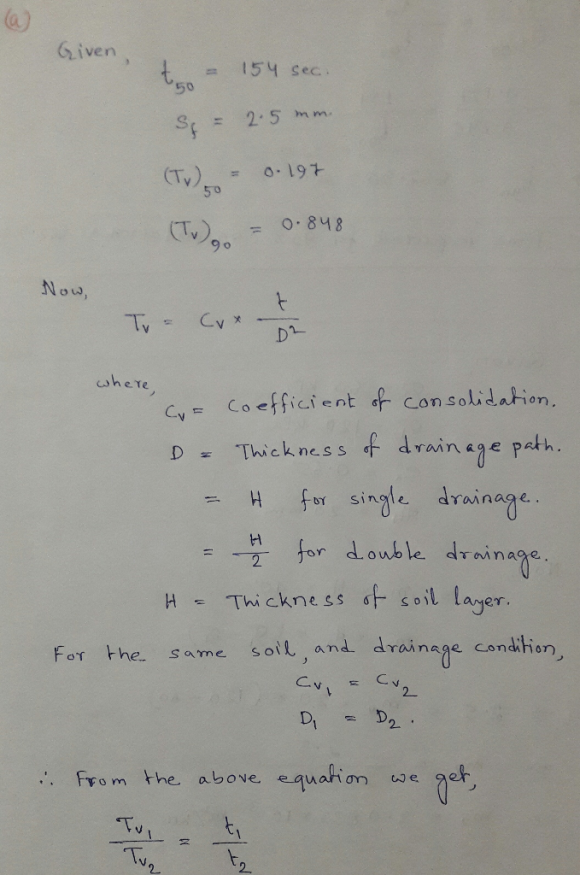 (a)
Given,
t₅₀ = 154 sec.
S_f = 2.5 mm.
(Tᵥ)₅₀ = 0.197
(Tᵥ)₉₀ = 0.848
Now,
Tᵥ = Cᵥ × t/D²
where,
Cᵥ = Coefficient of consolidation.
D = Thickness of drainage path.
= H for single drainage.
= H/2 for double drainage.
H = Thickness of soil layer.
For the same soil, and drainage condition,
Cᵥ₁ = Cᵥ₂
D₁ = D₂.
∴ From the above equation we get,
Tᵥ₁/Tᵥ₂ = t₁/t₂